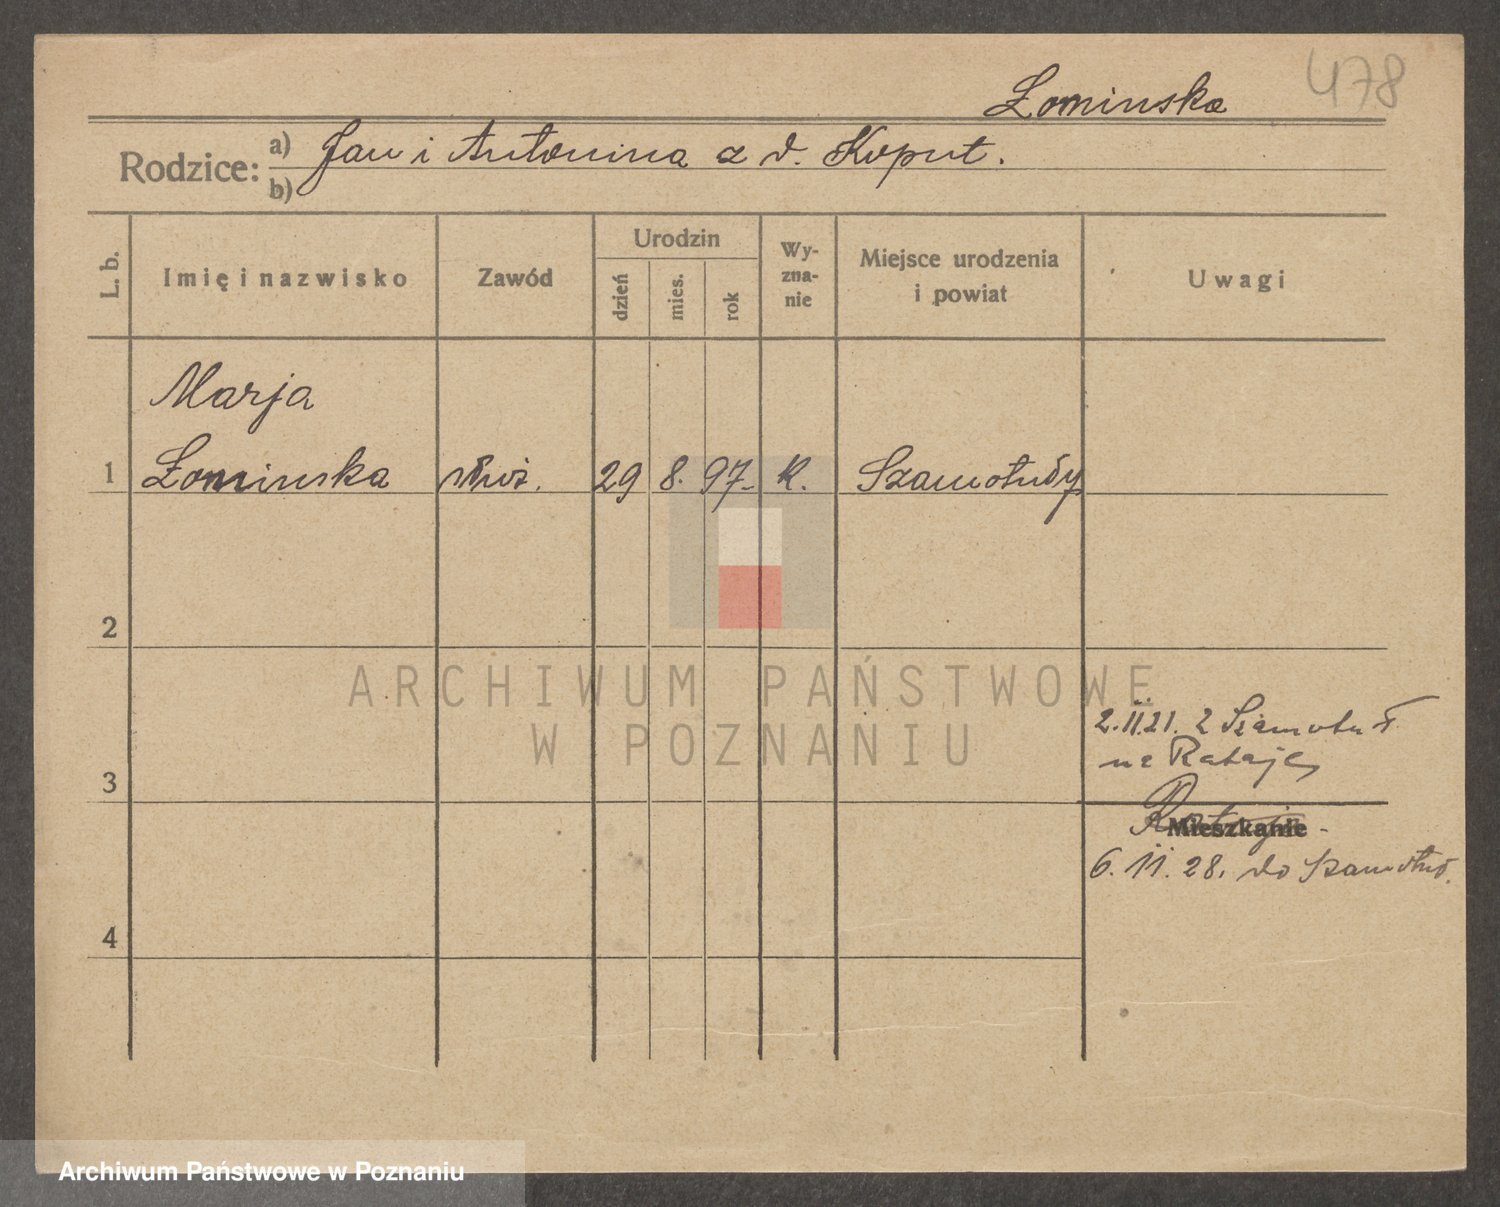 478
Łominska
Rodzice: a) Jan i Antonina z d. Koput.
b)
L. b.
Imię i nazwisko
Zawód
Urodzin
dzień
mies.
rok
Wy-
zna-
nie
Miejsce urodzenia
i powiat
Uwagi
Marja
1 Łominska służ. 29 8. 97. K. Szamotuły
2
ARCHIWUM PAŃSTWOWE
W POZNANIU
2.II.21. z Szamotuł
na Rataje
3
Rataje
Mieszkanie
6. 11. 28. do Szamotuł.
4
Archiwum Państwowe w Poznaniu